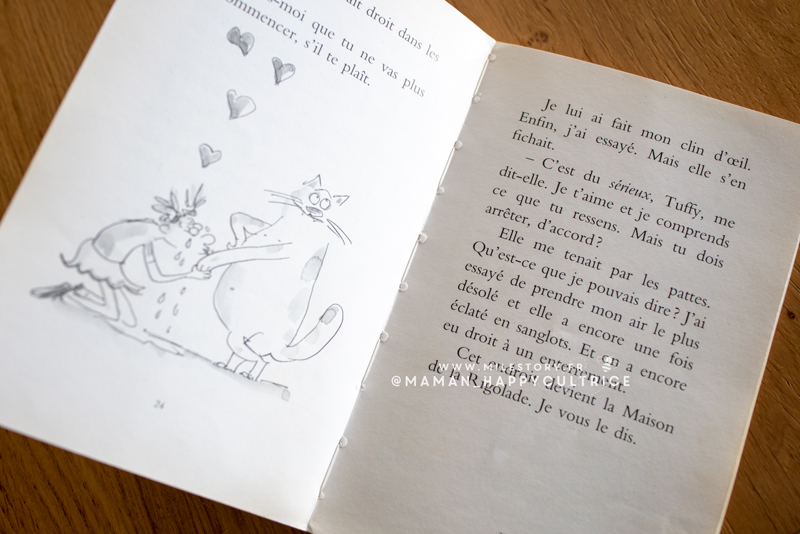 ait droit dans les
-moi que tu ne vas plus
ommencer, s'il te plaît.
24
Je lui ai fait mon clin d'œil.
Enfin, j'ai essayé. Mais elle s'en
fichait.
– C'est du sérieux, Tuffy, me
dit-elle. Je t'aime et je comprends
ce que tu ressens. Mais tu dois
arrêter, d'accord ?
Elle me tenait par les pattes.
Qu'est-ce que je pouvais dire ? J'ai
essayé de prendre mon air le plus
désolé et elle a encore une fois
éclaté en sanglots. Et on a encore
eu droit à un enterrement.
Cet endroit devient la Maison
de la Rigolade. Je vous le dis.
WWW.MILESTORY.FR
@MAMAN_HAPPYCULTRICE